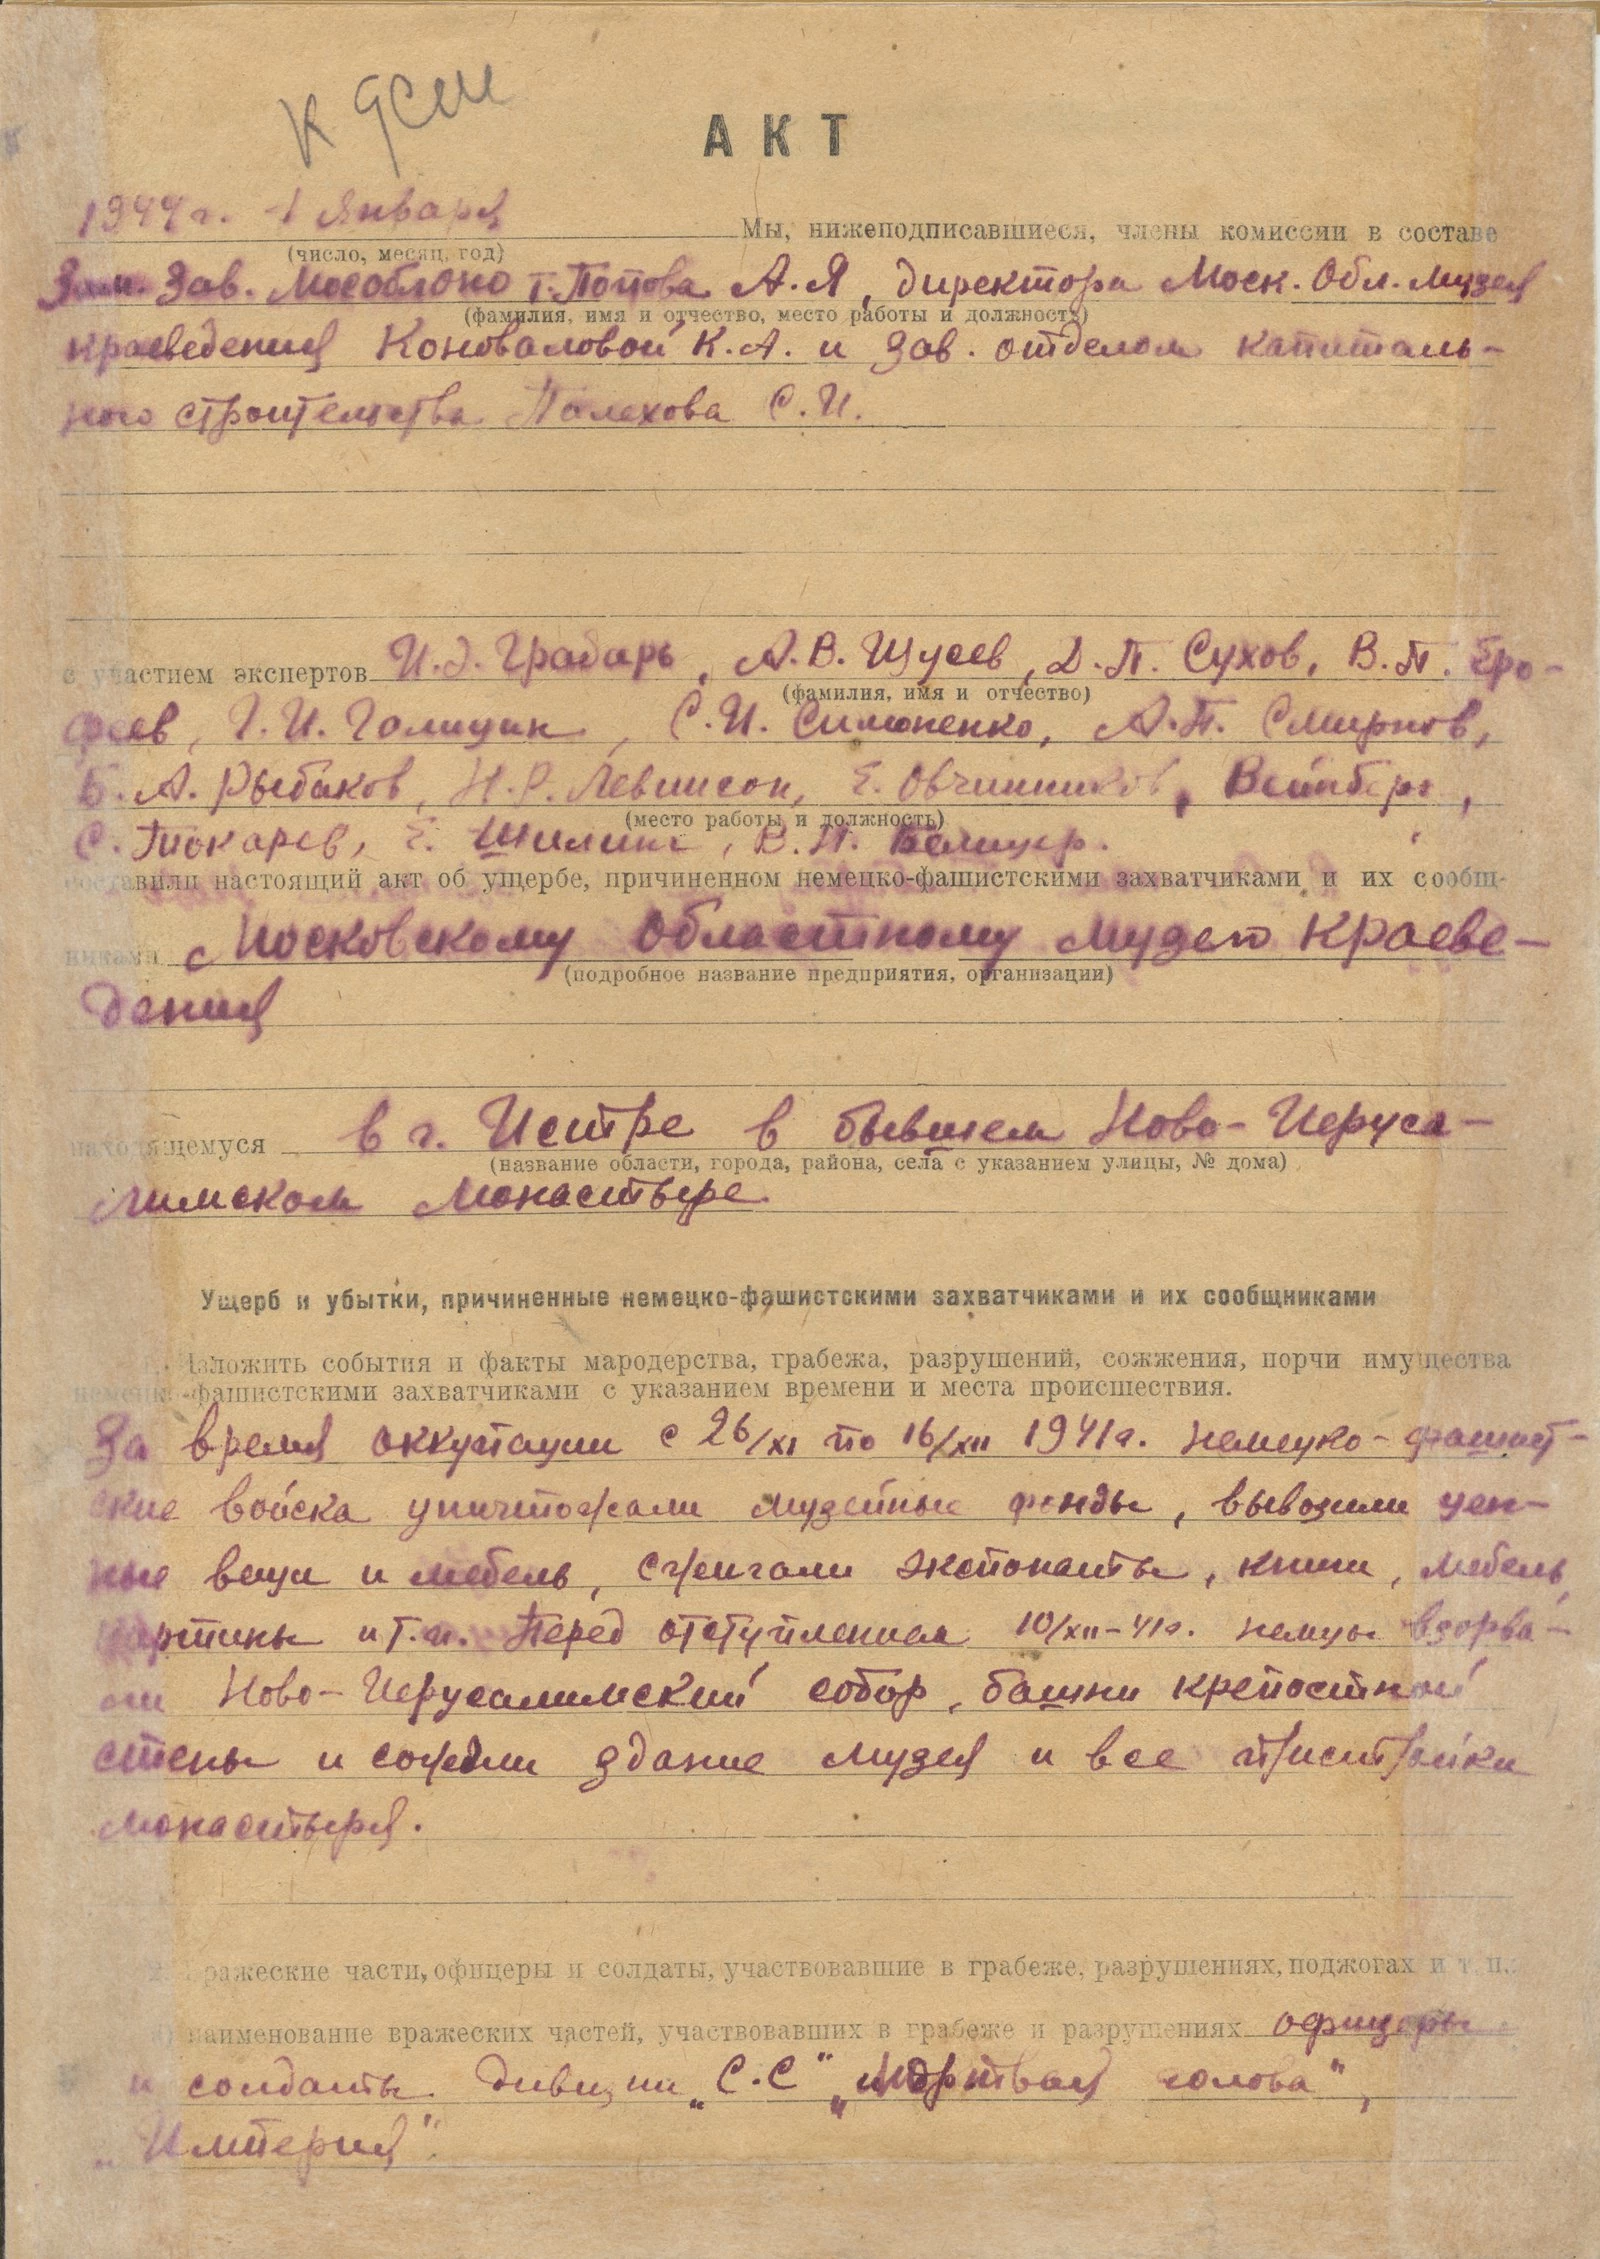 К ЯСМ
АКТ
1944 г. 1 Января Мы, нижеподписавшиеся, члены комиссии в составе
(число, месяц, год)
Зам. Зав. Мособлоно т. Попова А.Я, директора Моск. Обл. Музея
(фамилия, имя и отчество, место работы и должность)
краеведения Коноваловой К.А. и Зав. отделом капиталь-
ного строительства Палехова С.И.
с участием экспертов И.Э. Грабарь, А.В. Щусев, Д.П. Сухов, В.П. Еро-
(фамилия, имя и отчество)
феев, Г.И. Голицин, С.И. Симоненко, А.П. Смирнов,
Б.А. Рыбаков, Н.Р. Левинсон, Е. Овчинников, Вейнберг,
(место работы и должность)
С. Токарев, Е. Шиллинг, В.Н. Белицер.
составили настоящий акт об ущербе, причиненном немецко-фашистскими захватчиками и их сообщ-
никами Московскому Областному Музею Краеве-
(подробное название предприятия, организации)
дения
находящемуся в г. Истре в бывшем Ново-Иеруса-
(название области, города, района, села с указанием улицы, № дома)
лимском Монастыре.
Ущерб и убытки, причиненные немецко-фашистскими захватчиками и их сообщниками
1. Изложить события и факты мародерства, грабежа, разрушений, сожжения, порчи имущества
немецко-фашистскими захватчиками с указанием времени и места происшествия.
За время оккупации с 26/XI по 16/XII 1941 г. немецко-фашист-
ские войска уничтожали музейные фонды, вывозили цен-
ные вещи и мебель, сжигали экспонаты, книги, мебель,
картины и т.п. Перед отступлением 10/XII-41 г. немцы взорва-
ли Ново-Иерусалимский собор, башни крепостной
стены и сожгли здание музея и все пристройки
монастыря.
2. Вражеские части, офицеры и солдаты, участвовавшие в грабеже, разрушениях, поджогах и т. п.:
наименование вражеских частей, участвовавших в грабеже и разрушениях офицеры
и солдаты дивизии „С.С" „Мертвая голова",
„Империя".